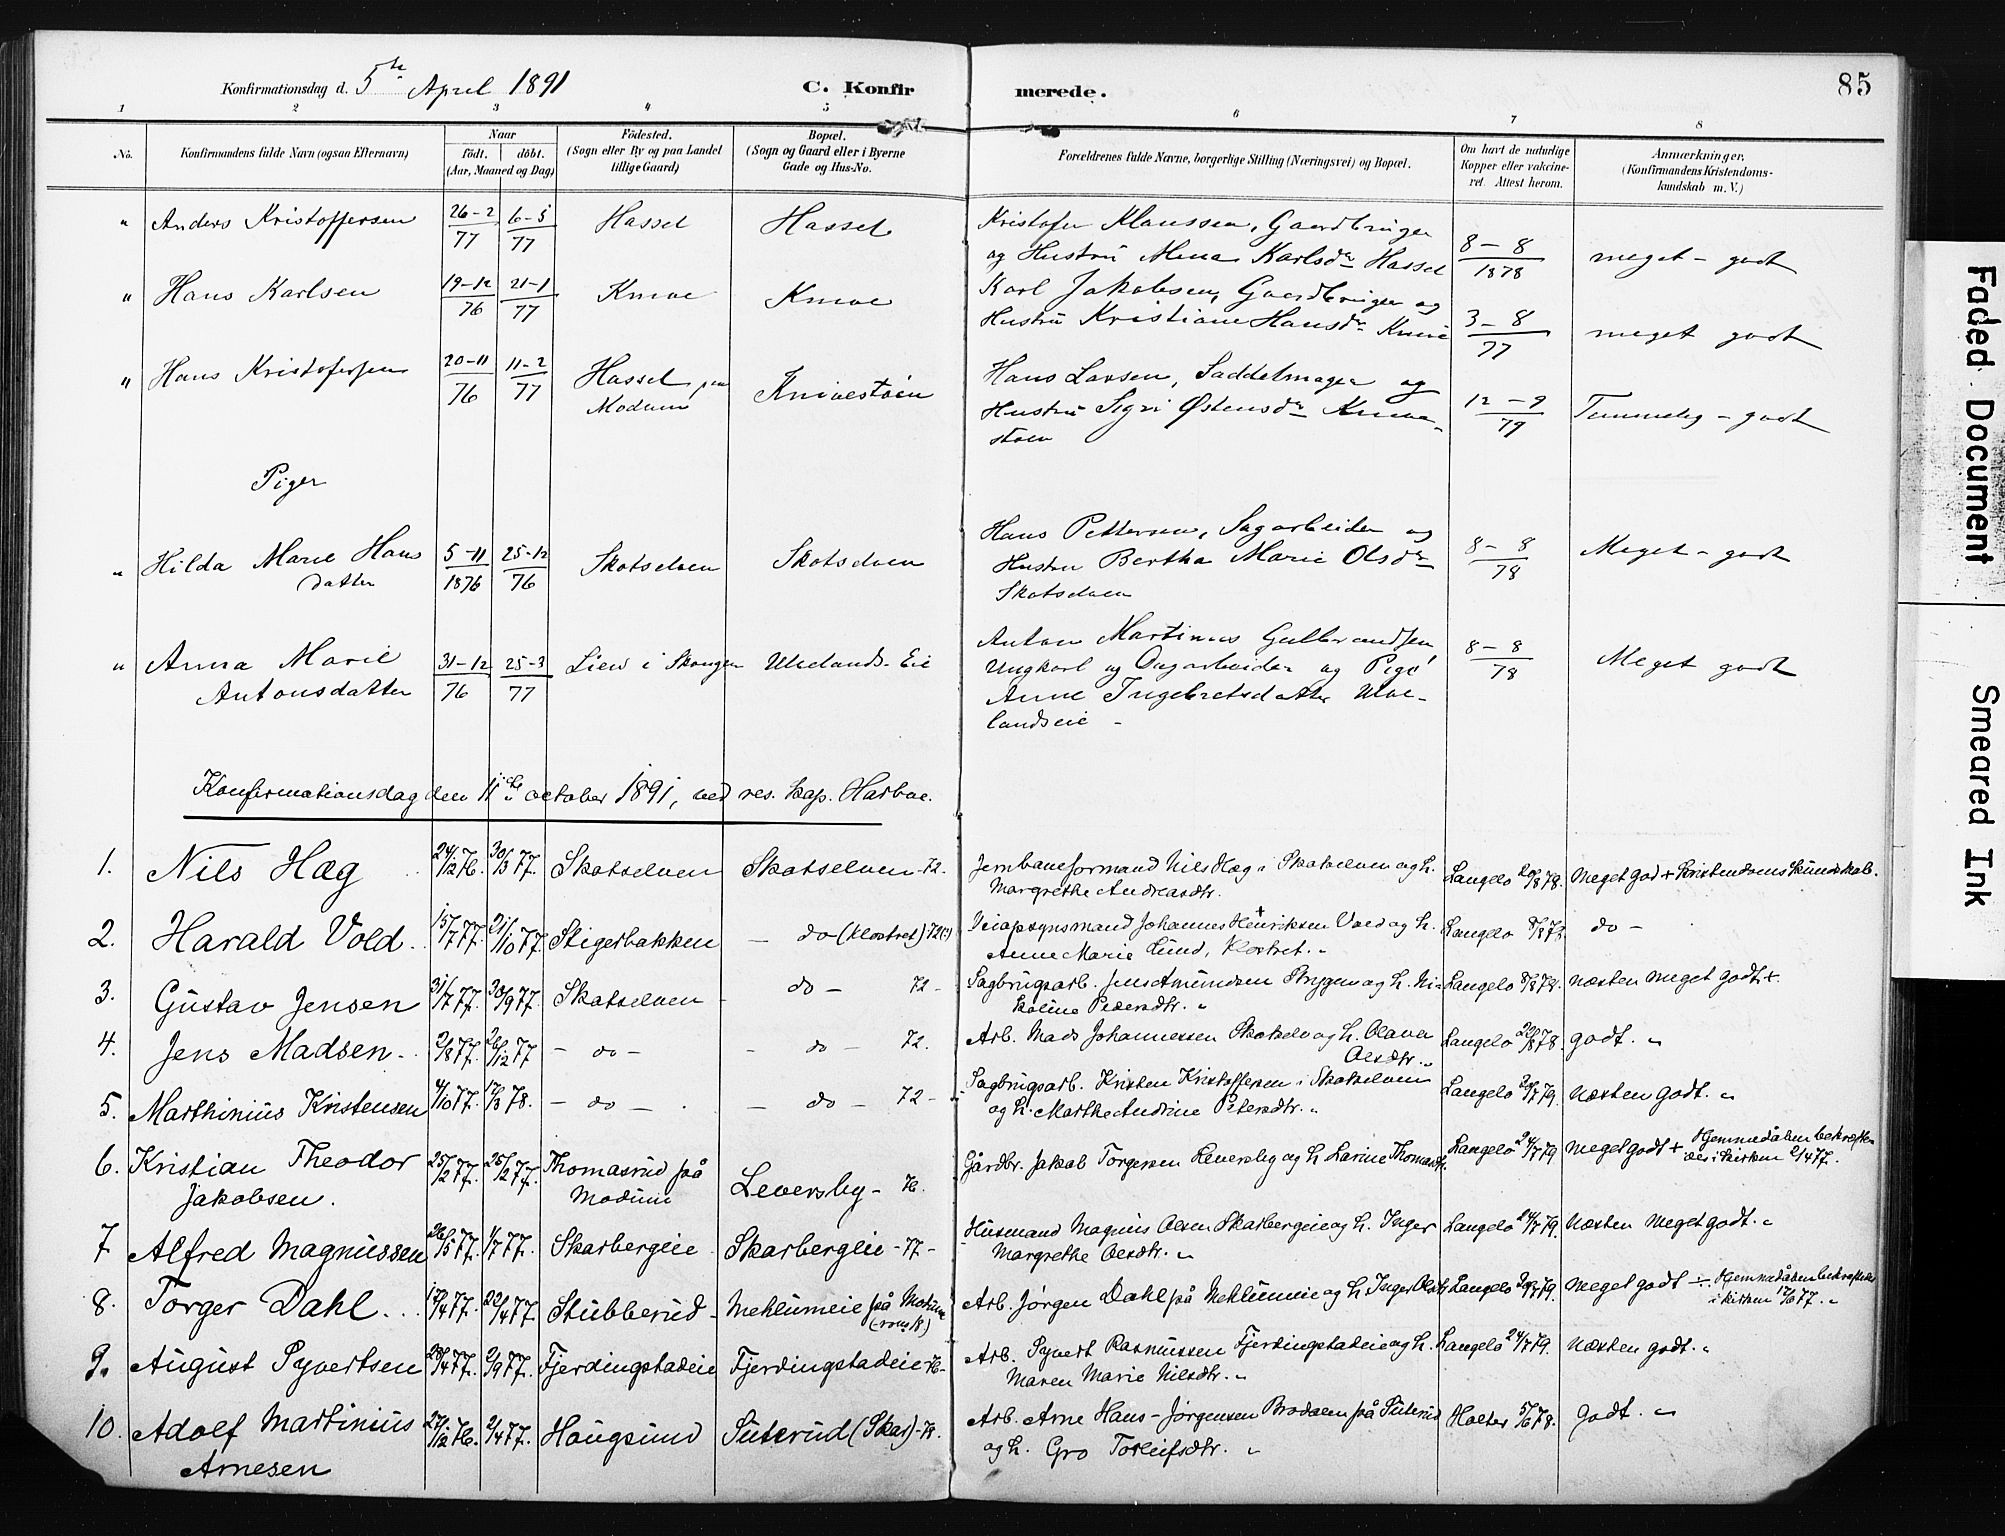 Konfirmationsdag d. 5te April 1891
C. Konfirmerede.
85
1 2 3 4 5 6 7 8
No. Konfirmandens fulde Navn (ogsaa Efternavn) Naar født. døbt. (Aar, Maaned og Dag) Fødested. (Sogn eller By og paa Landet tillige Gaard) Bopæl. (Sogn og Gaard eller i Byerne Gade og Hus-No. Forældrenes fulde Navne, borgerlige Stilling (Næringsvei) og Bopæl. Om havt de naturlige Kopper eller vakcineret. Attest herom. Anmærkninger. (Konfirmandens Kristendomskundskab m. V.)
" Anders Kristoffersen 26-2/77 6-5/77 Hassel Hassel Kristofer Klaussen, Gaardbruger
og Hustru Karlsdr Hassel 8-8/1878 meget - godt
" Hans Karlsen 19-12/76 21-1/77 Knive Knive Karl Jakobsen, Gaardbruger og
Hustru Kristiane Hansdr Knive 3-8/77 meget godt
" Hans Kristofersen 20-11/76 11-2/77 Hassel paa Modum Knivestøen Hans Larsen, Saddelmager og
Hustru Sigri Østensdr Knive-
støen 12-9/79 Temmelig - godt
Piger
" Hilda Marie Hans
datter 5-11/1876 25-12/76 Skotselven Skotselven Hans Pettersen, Sagarbeider og
Hustru Bertha Marie Olsdr
Skotselven 8-8/78 Meget - godt
" Anna Marie
Antonsdatter 31-12/76 25-3/77 Lien i Skougen Ulvelands-Eie Anton Martinius Gulbrandsen
Ungkarl og Dagarbeider og Pige
Anne Ingebretsdatter Ulve-
landseie - 8-8/78 Meget godt
Konfirmationsdag den 11te october 1891, ved res. kap. Harboe.
1. Nils Hæg 24/12 76. 30/3 77. Skotselven Skotselven - 72. Jernbaneformand Nils Hæg i Skotselven og h.
Margrethe Andreasdtr. Langelo 20/8 78. Meget god + Kristendomskundskab.
2. Harald Vold 15/7 77. 21/10 77. Stigerbakken - do (Klostret) 72 Johannes Henriksen Vold og h.
Anne Marie Lund, Klostret. " Langelo 8/8 78 do -
3. Gustav Jensen 31/7 77. 30/9 77. Skotselven do - 72 - Sagbrugsarb. Jens Amundsen og h. Ni-
koline Pedersdtr. " Langelo 8/8 78. næsten meget godt +.
4. Jens Madsen 2/8 77. 26/12 77 - do - - do - 72. Arb. Mads Johannessen Skotselv og h. Olava
Olsdtr. " Langelo 20/8 78. godt. "
5. Marthinius Kristensen 4/10 77. 17/3 78. - do - - do - 72 - Sagbrugsarb. Kristen Kristoffersen i Skotselven
og h. Marthe Andrine Petersdtr. " Langelo 24/7 79. næsten godt. "
6. Kristian Theodor
Jakobsen. 25/2 77. 25/2 77. Thomasrud på
Modum Leversby - 76. Gårdbr. Jakob Torgersen Leversby og h. Larine Thomasdtr. Langelo 24/7 79 meget godt + Hjemmedåben bekræftedes
i kirken 2/4 77.
7 Alfred Magnussen 26/5 77. 1/7 77. Skarbergeie Skarbergeie - 77 - Husmand Magnus Olsen Skarbergeie og h. Inger
Margrethe Olsdtr. " Langelo 24/7 79. næsten meget godt. "
8. Torger Dahl. 14/4 77. 22/4 77. Stubberud - Mehlumeie på Modum Arb. Jørgen Dahl på Mehlumeie og h. Inger Olsdtr. Langelo 24/7 79. meget godt ÷. Hjemmedåben bekræftedes
i kirken 17/6 77. "
9. August Syvertsen 28/4 77. 2/9 77. Fjerdingstadeie Fjerdingstadeie 76- Arb. Syvert Rasmussen Fjerdingstadeie og h.
Maren Marie Nilsdtr. " Langelo 24/7 79. næsten godt. "
10. Adolf Martinius
Arnesen 27/12 76. 2/4 77. Hougsund Suterud (Skar) - 78. Arb. Arne Hans-Jørgensen Brodalen på Suterud
og h. Gro Torleifsdtr. " Holter 5/6 78. godt. "
Faded Document
Smeared Ink